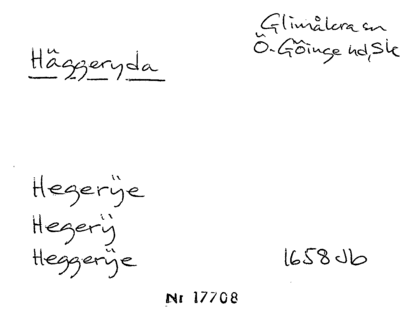 Glimåkra sn
Häggeryda
Ö-Göinge hd, Sk
Hegerÿe
Hegerÿ
Heggerÿe 1658 Jb
Nr 17708